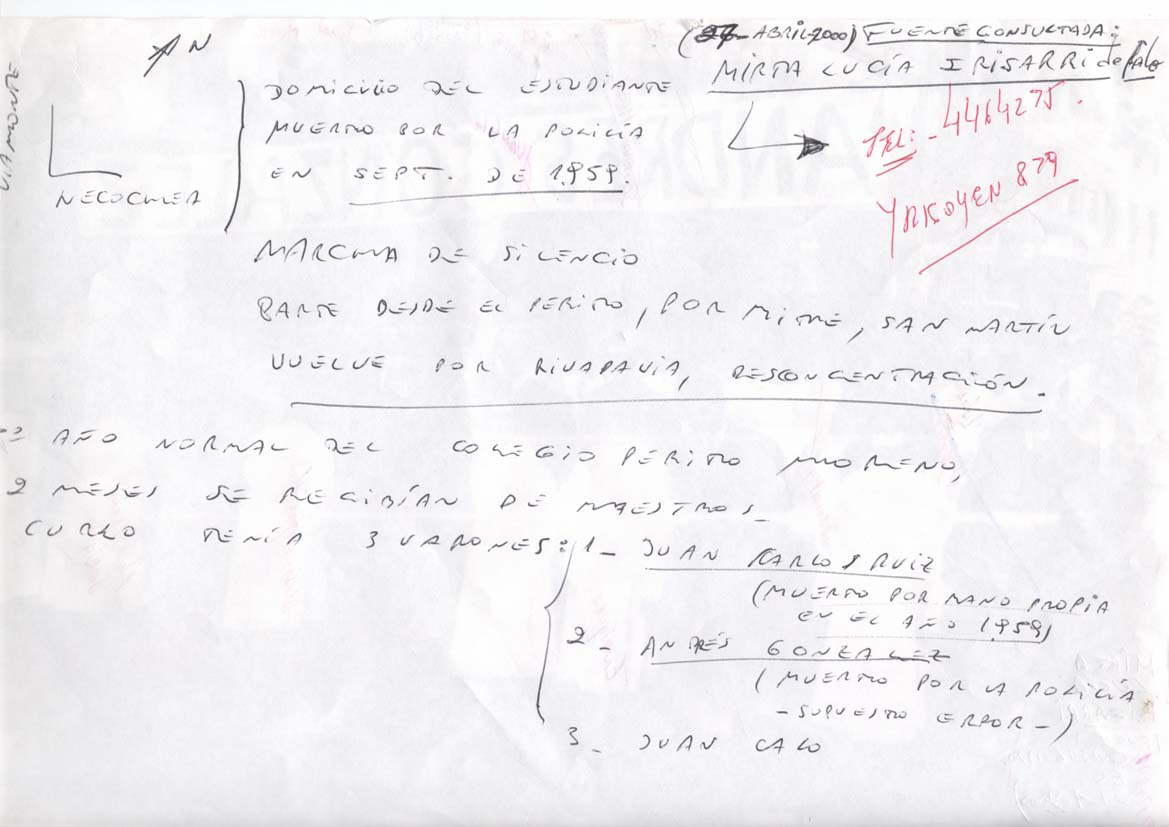 (27- ABRIL-2000) FUENTE CONSULTADA:
MIRTA LUCÍA IRISARRI de
TEL: - 4464275.
YRIGOYEN 879
AN
NECOCHEA
DOMICILIO DEL ESTUDIANTE
MUERTO POR LA POLICÍA
EN SEPT. DE 1959.
MARCHA DE SILENCIO
PARTE DESDE EL PERITO, POR MITRE, SAN MARTÍN
VUELVE POR RIVADAVIA, DESCONCENTRACIÓN.
AÑO NORMAL DEL COLEGIO PERITO MORENO,
2 MESES SE RECIBÍAN DE MAESTROS-
CURSO TENÍA 3 VARONES: 1- JUAN CARLOS RUIZ
(MUERTO POR MANO PROPIA
EN EL AÑO 1959)
2- ANDRÉS GONZALEZ
(MUERTO POR LA POLICÍA
-SUPUESTO ERROR-)
3- JUAN CALO